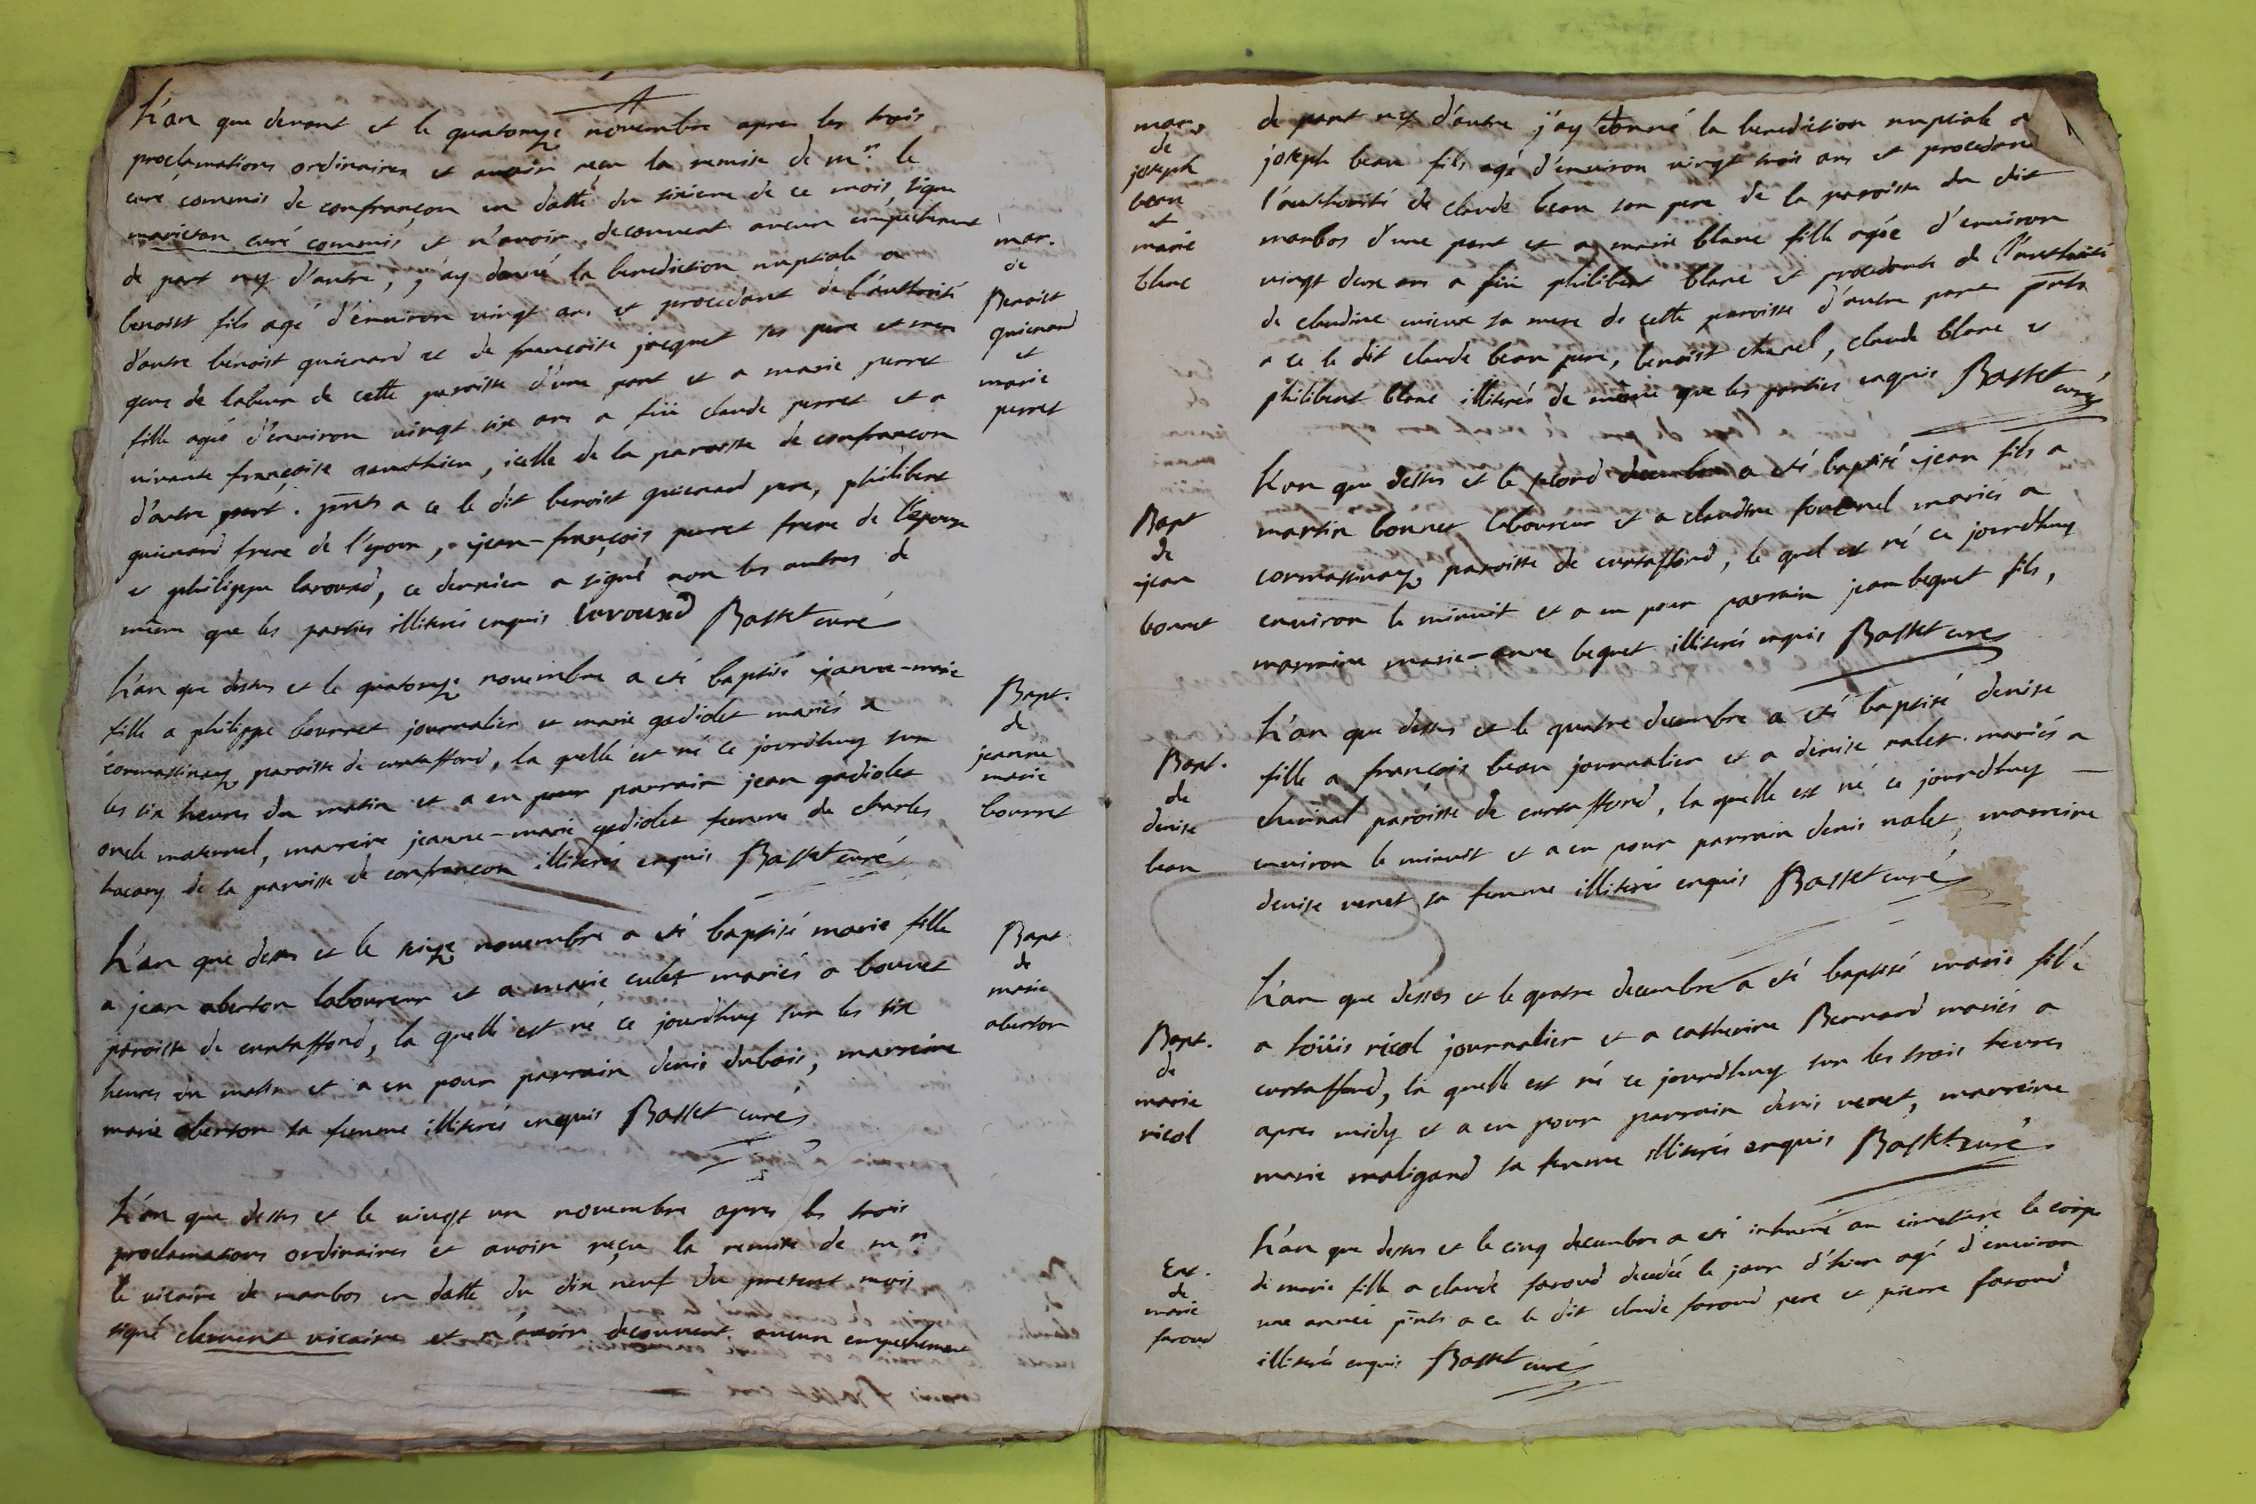 L'an que devant et le quatorze novembre apres les trois
proclamations ordinaires et avoir reçu la remise de mr. le
curé commis de confrançon en datte du sixieme de ce mois signe
marieton curé commis et n'avoir decouvert aucun empechement
de part ny d'autre, j'ay donné la benediction nuptiale a
benoist fils agé d'environ vingt ans et procedant de l'authorité
d'autre benoist guienard et de françoise jacquet ses pere et mere
gens de labeur de cette paroisse d'une part et a marie perret
fille agée d'environ vingt six ans a feu claude perret et a
vivante françoise gauthier, icelle de la paroisse de confrançon
d'autre part. pnts a ce le dit benoist guienard pere, philibert
guienard frere de l'epoux, jean-françois perret frere de l'epouse
et philippe laround, ce dernier a signé non les autres de
meme que les parties illiterés enquis laround Basset curé
mar.
de
Benoist
guienard
et
marie
perret
L'an que dessus et le quatorze novembre a eté baptisé jeanne-marie
fille a philippe bourret journalier et marie gadiolet mariés a
cormassinay paroisse de curtaffond, la quelle est né ce jourdhuy sur
les six heures du matin et a eu pour parrain jean gadiolet
oncle maternel, marreine jeanne-marie gadiolet femme de charles
bacary de la paroisse de confrançon illiterés enquis Basset curé
Bapt.
de
jeanne
marie
bourret
L'an que dessus et le seize novembre a eté baptisé marie fille
a jean aberton laboureur et a marie culet mariés a bouvet
paroisse de curtaffond, la quelle est né ce jourdhuy sur les six
heures du matin et a eu pour parrain denis dubois, marreine
marie aberton sa femme illiterés enquis Basset curé
Bapt
de
marie
aberton
L'an que dessus et le vingt un novembre apres les trois
proclamations ordinaires et avoir reçu la remise de mr.
le vicaire de manbos en datte du dix neuf du present mois
signé clement vicaire et n'avoir decouvert aucun empechement
mar.
de
joseph
bean
et
marie
blanc
de part ny d'autre j'ay donné la benediction nuptiale a
joseph bean fils agé d'environ vingt trois ans et procedant
l'authorité de claude bean son pere de la paroisse du dit
manbos d'une part et a marie blanc fille agée d'environ
vingt deux ans a feu philibert blanc et procedante de l'authorité
de claudine cuieux sa mere de cette paroisse d'autre part pnts
a ce le dit claude bean pere, benoist chanel, claude blanc et
philibert blanc illiterés de même que les parties enquis Basset curé
Bapt
de
jean
bonnet
L'an que dessus et le second decembre a eté baptisé jean fils a
martin bonnet laboureur et a claudine fontenel mariés a
cormassinay paroisse de curtaffond, le quel est né ce jourdhuy
environ le minuit et a eu pour parrain jean beguet fils,
marraine marie-anne beguet illiterés enquis Basset curé
Bapt.
de
denise
bean
L'an que dessus et le quatre decembre a eté baptisé denise
fille a françois bean journalier et a denise nalet mariés a
cheirnal paroisse de curtaffond, la quelle est né ce jourdhuy
environ le minuit et a eu pour parrain denis nalet, marreine
denise venet sa femme illiterés enquis Basset curé
Bapt.
de
marie
ricol
L'an que dessus et le quatre decembre a eté baptisé marie fille
a loüis ricol journalier et a catherine Bernard mariés a
curtaffond, la quelle est né ce jourdhuy sur les trois heures
apres midy et a eu pour parrain denis venet, marreine
marie maligand sa femme illiterés enquis Basset curé
Ent.
de
marie
faroud
L'an que dessus et le cinq decembre a eté inhumé au cimetiere le corps
de marie fille a claude faroud decedée le jour d'hier agé d'environ
une année pnts a ce le dit claude faroud pere et pierre faroud
illiterés enquis Basset curé